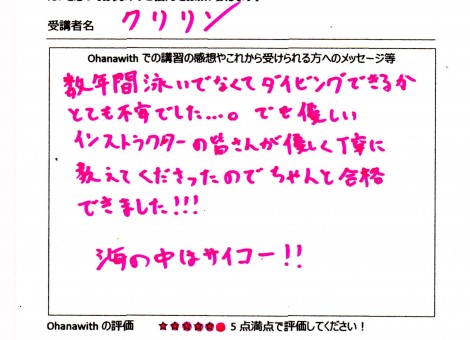 受講者名 クリリン
Ohanawith での講習の感想やこれから受けられる方へのメッセージ等
数年間泳いでなくてダイビングできるか
とても不安でした...。でも優しい
インストラクターの皆さんが優しく丁寧に
教えてくださったのでちゃんと合格
できました!!!
海の中はサイコー!!
Ohanawith の評価 ★★★★★● 5 点満点で評価してください！